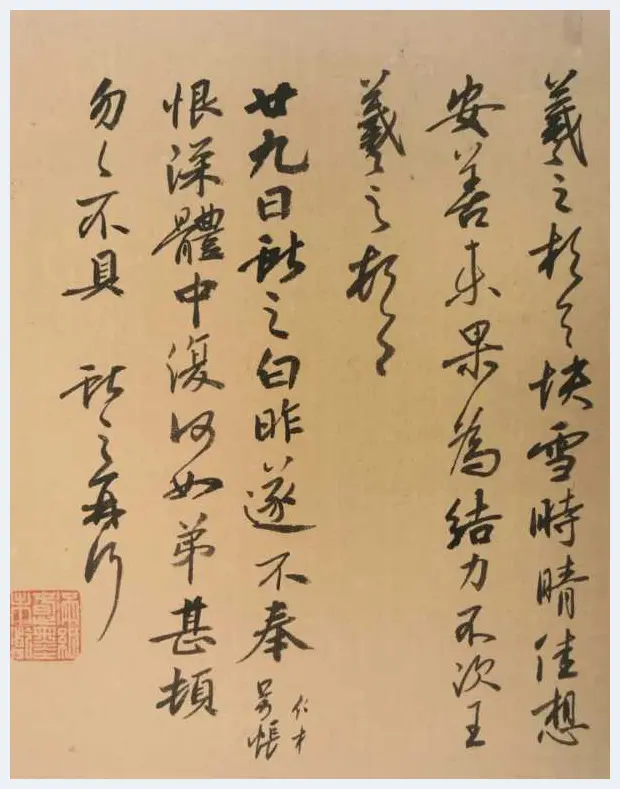 羲之頓首快雪時晴佳想
安善未果為結力不次王
羲之頓首
廿九日獻之白昨遂不奉
恨深體中復何如弟甚頓
勿々不具 獻之再拜